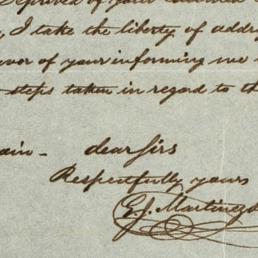 of your
, I take the liberty of addre
avor of your informing me
steps taken in regard to th
ain - dear Sirs
Respectfully yours
E. J. Martinez